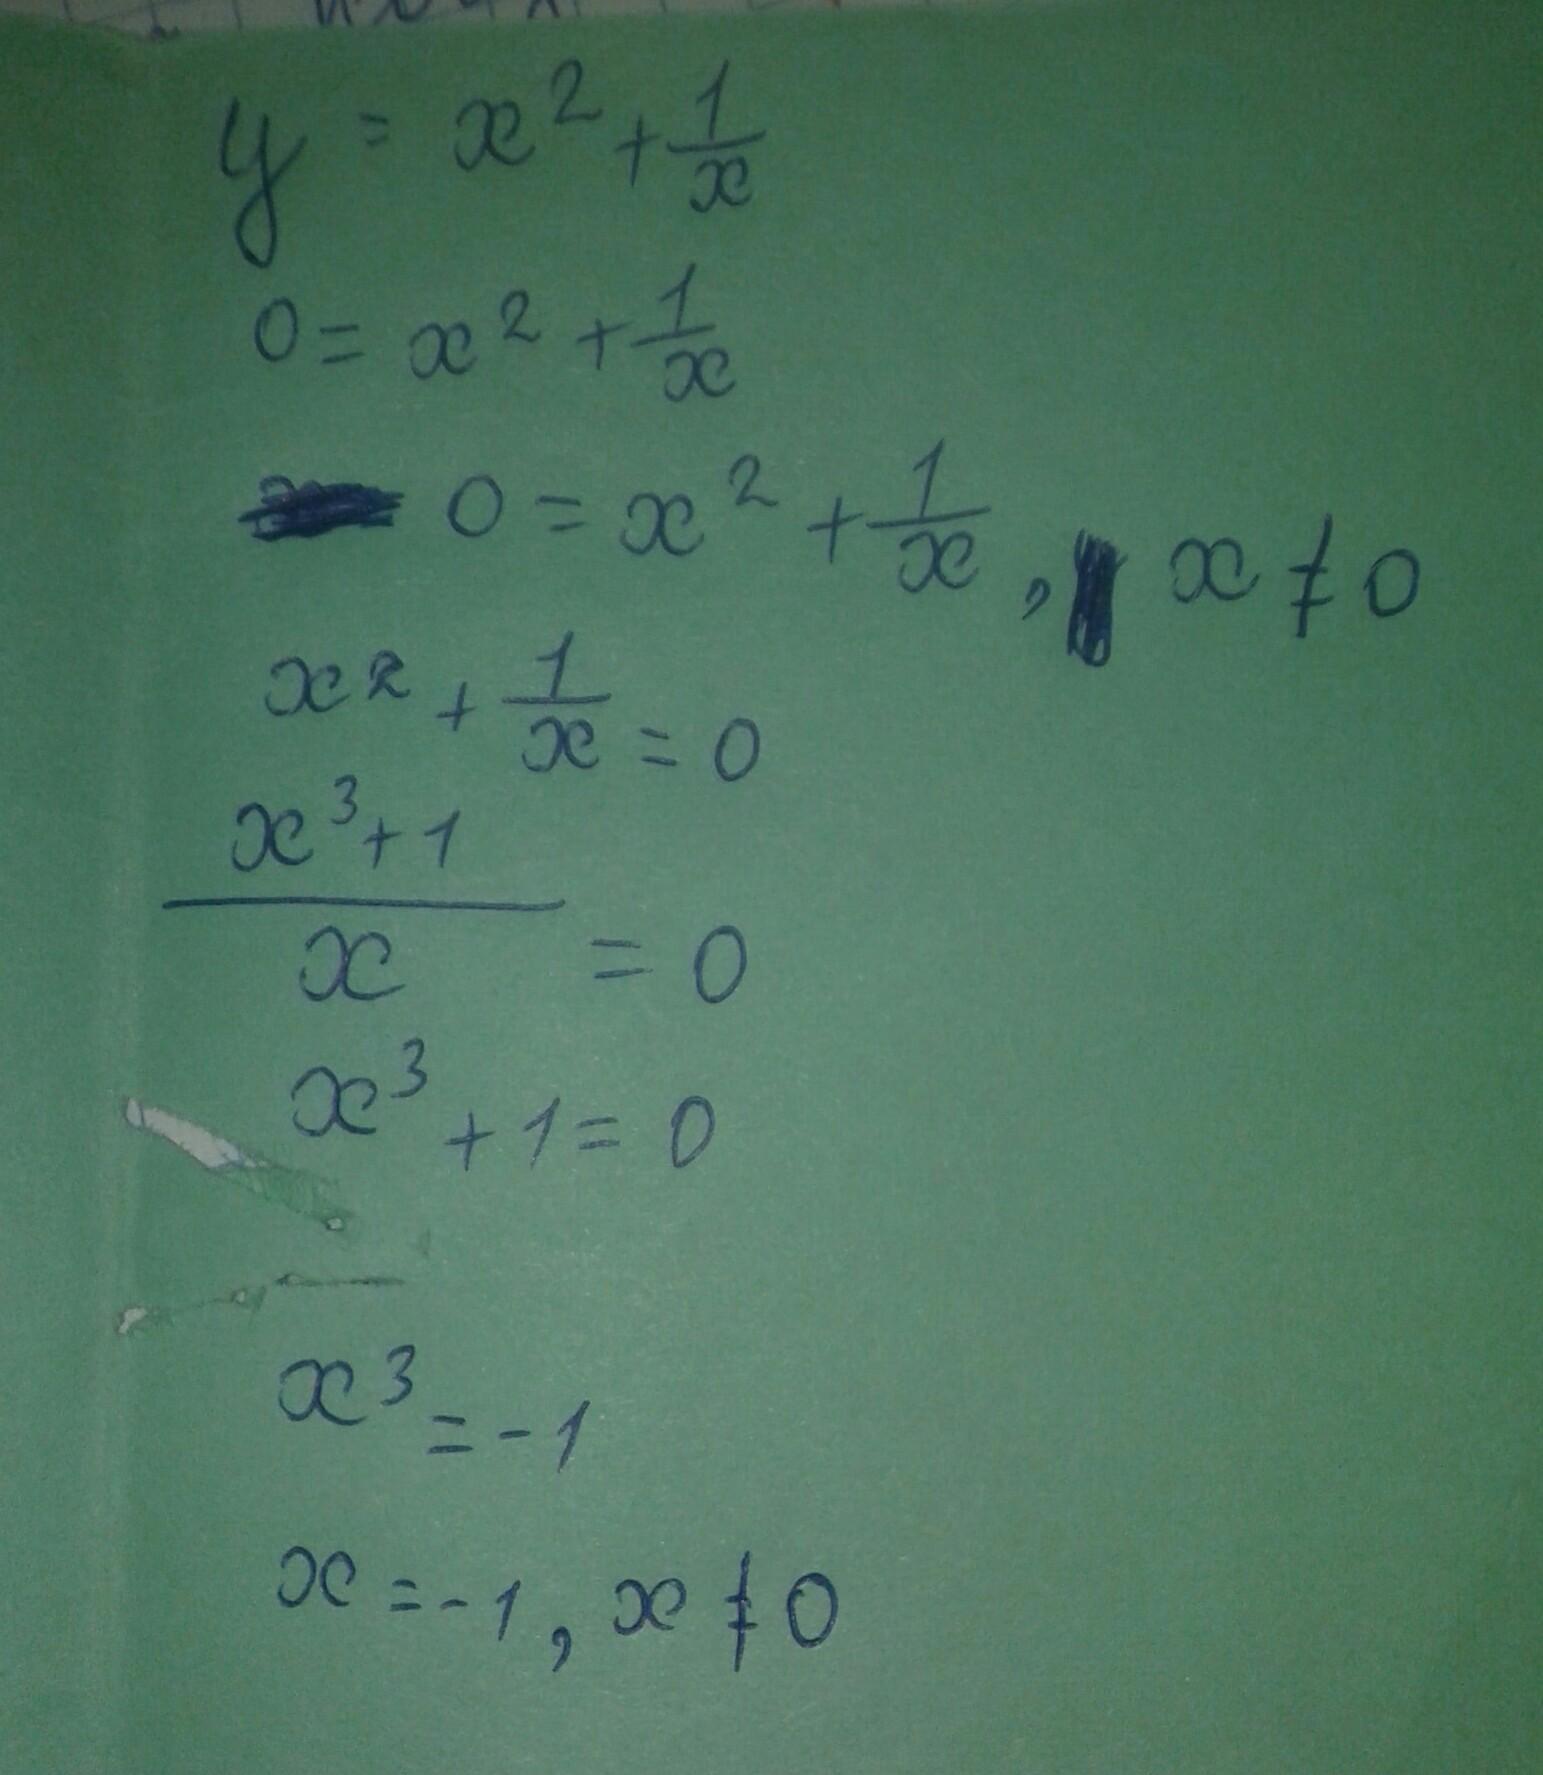 y = x² + 1/x
0 = x² + 1/x
0 = x² + 1/x, x ≠ 0
x² + 1/x = 0
(x³ + 1)/x = 0
x³ + 1 = 0
x³ = -1
x = -1, x ≠ 0